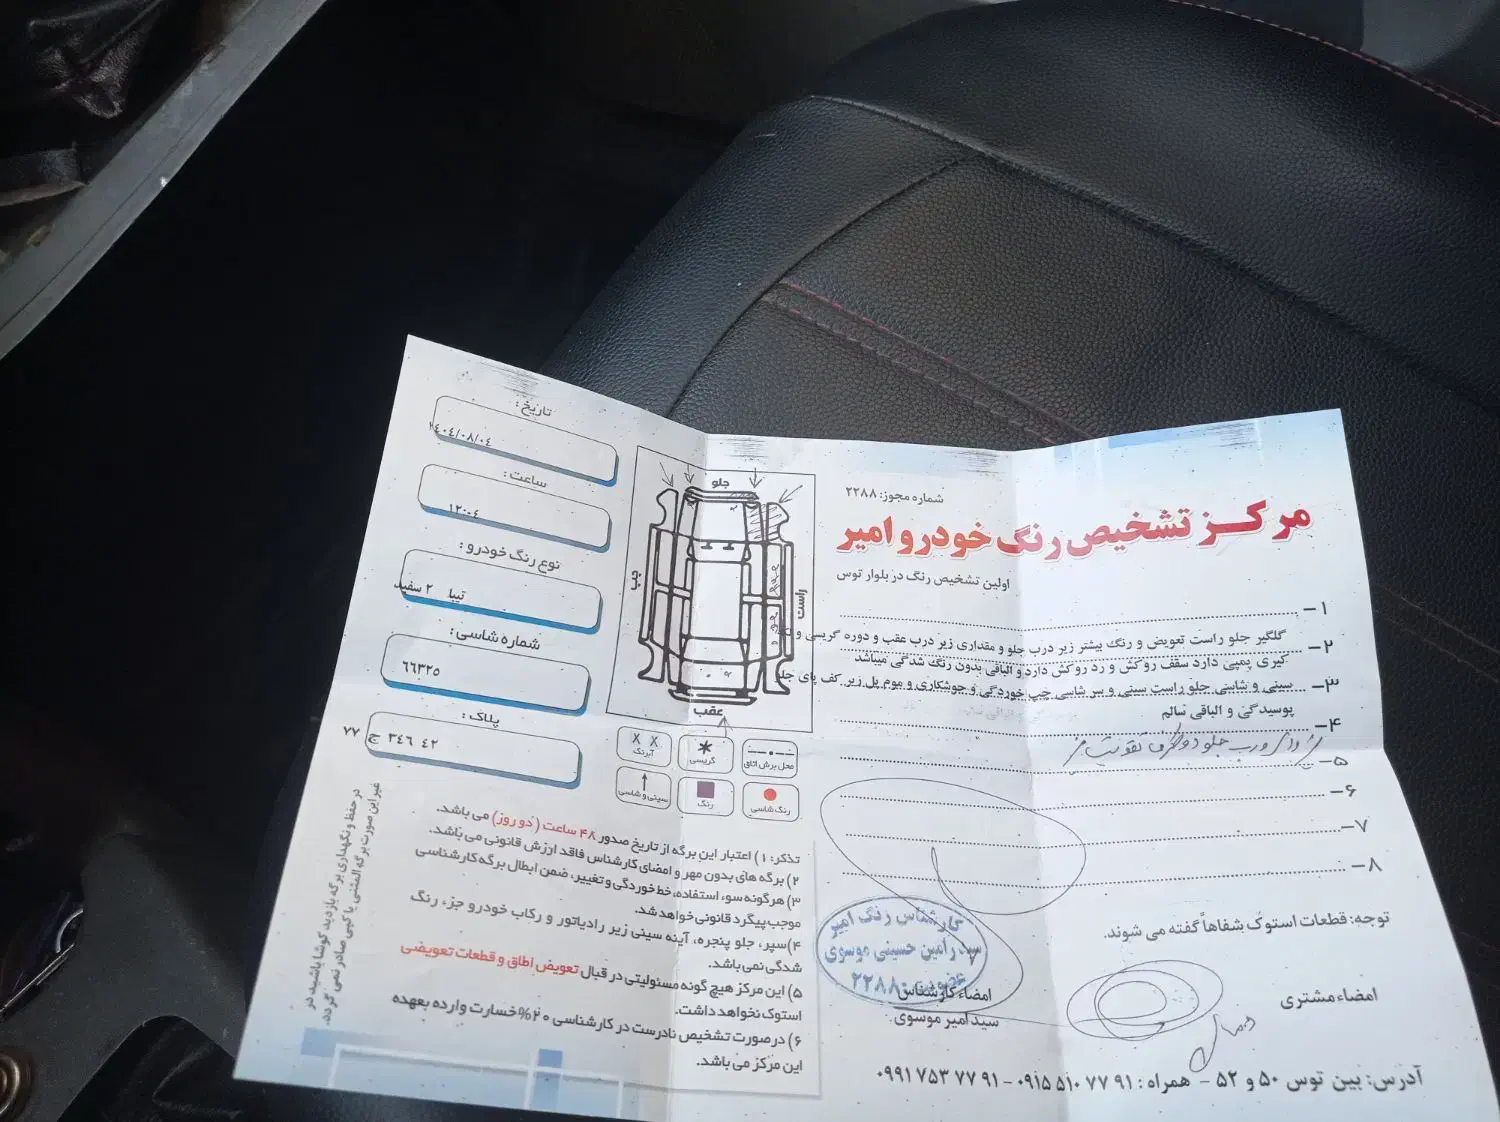 شماره مجوز: ۲۲۸۸
مرکز تشخیص رنگ خودرو امیر
اولین تشخیص رنگ در بلوار توس
۱-
گلگیر جلو راست تعویض و رنگ بیشتر زیر درب جلو و مقداری زیر درب عقب و دوره گریسی و
۲-
گیری پمپی دارد سقف روکش و رد روکش دارد و الباقی بدون رنگ شدگی میباشد
۳-
سینی و شاسی جلو راست سینی و سر شاسی چپ خوردگی و جوشکاری و موم پل زیر کف پای جلو
پوسیدگی و الباقی سالم
۴-
درب جلو دو طرف تقویت
۵-
۶-
۷-
۸-
توجه: قطعات استوک شفاهاً گفته می شوند.
امضاء مشتری
امضاء کارشناس
سید امیر موسوی
کارشناس رنگ امیر
سید رامین حسینی موسوی
عضویت: ۲۲۸۸
آدرس: بین توس ۵۰ و ۵۲ - همراه: ۹۱ ۷۷ ۵۱۰ ۰۹۱۵ - ۹۱ ۷۷ ۷۵۳ ۰۹۹۱
تاریخ:
۱۴۰۴/۰۸/۰۴
ساعت:
۱۲:۰۴
نوع رنگ خودرو:
تیبا ۲ سفید
شماره شاسی:
٦٦٣٢٥
پلاک:
٤٢ ٣٤٦ ج ٧٧
جلو
راست
چپ
عقب
محل برش اتاق
گریسی
آبرنگ
رنگ شاسی
رنگ
سینی و شاسی
تذکر: ۱) اعتبار این برگه از تاریخ صدور ۴۸ ساعت (دو روز) می باشد.
۲) برگه های بدون مهر و امضای کارشناس فاقد ارزش قانونی می باشد.
۳) هرگونه سوء استفاده، خط خوردگی و تغییر، ضمن ابطال برگه کارشناسی
موجب پیگرد قانونی خواهد شد.
۴) سپر، جلو پنجره، آینه سینی زیر رادیاتور و رکاب خودرو جزء رنگ
شدگی نمی باشد.
۵) این مرکز هیچ گونه مسئولیتی در قبال تعویض اطاق و قطعات تعویضی
استوک نخواهد داشت.
۶) در صورت تشخیص نادرست در کارشناسی ۲۰% خسارت وارده بعهده
این مرکز می باشد.
در حفظ و نگهداری برگه بازدید کوشا باشید، در
غیر این صورت برگه المثنی یا کپی صادر نمی گردد.